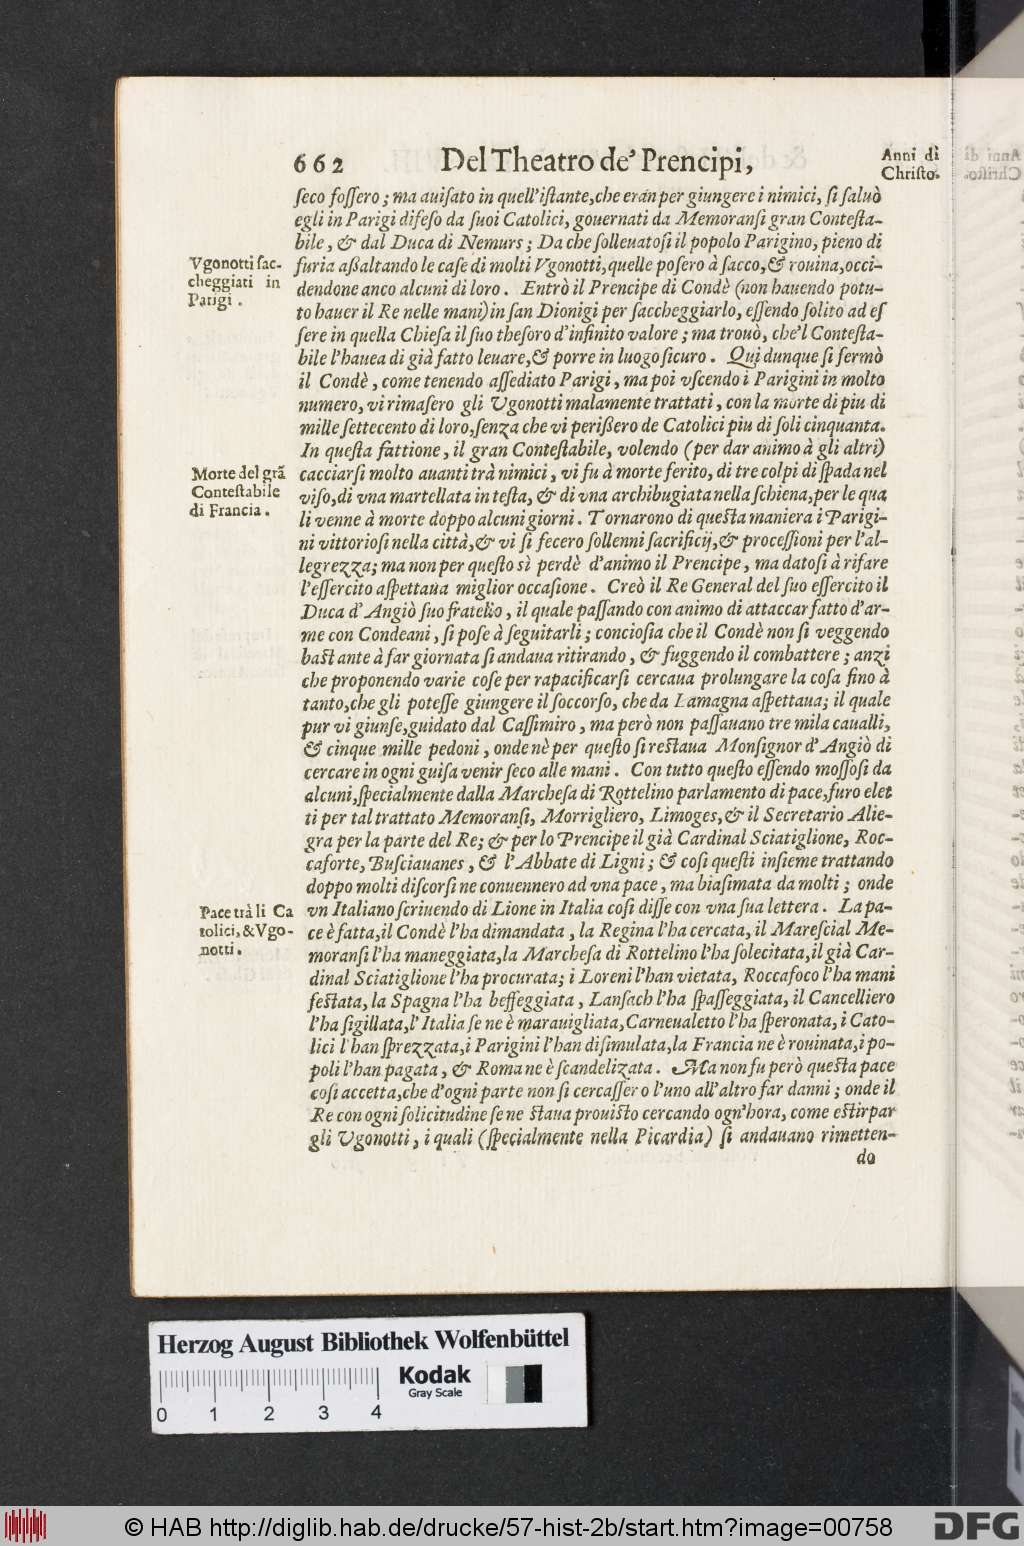 662 Del Theatro de' Prencipi,
Anni di
Christo.
ſeco foſſero; ma auiſato in quell'iſtante, che eran per giungere i nimici, ſi ſaluò
egli in Parigi difeſo da ſuoi Catolici, gouernati da Memoranſi gran Conteſta-
bile, & dal Duca di Nemurs; Da che ſolleuatoſi il popolo Parigino, pieno di
Vgonotti ſac-
cheggiati in
Parigi.
furia aßaltando le caſe di molti Vgonotti, quelle poſero à ſacco, & rouina, occi-
dendone anco alcuni di loro. Entrò il Prencipe di Condè (non hauendo potu-
to hauer il Re nelle mani) in ſan Dionigi per ſaccheggiarlo, eſſendo ſolito ad eſ
ſere in quella Chieſa il ſuo theſoro d'infinito valore; ma trouò, che'l Conteſta-
bile l'hauea di già fatto leuare, & porre in luogo ſicuro. Qui dunque ſi fermò
il Condè, come tenendo aſſediato Parigi, ma poi vſcendo i Parigini in molto
numero, vi rimaſero gli Vgonotti malamente trattati, con la morte di piu di
mille ſettecento di loro, ſenza che vi perißero de Catolici piu di ſoli cinquanta.
In queſta fattione, il gran Conteſtabile, volendo (per dar animo à gli altri)
Morte del grã
Conteſtabile
di Francia.
cacciarſi molto auanti trà nimici, vi fu à morte ferito, di tre colpi di ſpada nel
viſo, di vna martellata in teſta, & di vna archibugiata nella ſchiena, per le qua
li venne à morte doppo alcuni giorni. Tornarono di queſta maniera i Parigi-
ni vittorioſi nella città, & vi ſi fecero ſollenni ſacrificij, & proceſſioni per l'al-
legrezza; ma non per queſto sì perdè d'animo il Prencipe, ma datoſi à rifare
l'eſſercito aſpettaua miglior occaſione. Creò il Re General del ſuo eſſercito il
Duca d'Angiò ſuo fratello, il quale paſſando con animo di attaccar fatto d'ar-
me con Condeani, ſi poſe à ſeguitarli; concioſia che il Condè non ſi veggendo
baſtante à far giornata ſi andaua ritirando, & fuggendo il combattere; anzi
che proponendo varie coſe per rapacificarſi cercaua prolungare la coſa fino à
tanto, che gli poteſſe giungere il ſoccorſo, che da Lamagna aſpettaua; il quale
pur vi giunſe, guidato dal Caſſimiro, ma però non paſſauano tre mila caualli,
& cinque mille pedoni, onde nè per queſto ſi reſtaua Monſignor d'Angiò di
cercare in ogni guiſa venir ſeco alle mani. Con tutto queſto eſſendo moſſoſi da
alcuni, ſpecialmente dalla Marcheſa di Rottelino parlamento di pace, furo elet
ti per tal trattato Memoranſi, Morrigliero, Limoges, & il Secretario Alie-
gra per la parte del Re; & per lo Prencipe il già Cardinal Sciatiglione, Roc-
caforte, Buſciauanes, & l'Abbate di Ligni; & coſi queſti inſieme trattando
doppo molti diſcorſi ne conuennero ad vna pace, ma biaſimata da molti; onde
Pace trà li Ca
tolici, & Vgo-
notti.
vn Italiano ſcriuendo di Lione in Italia coſi diſſe con vna ſua lettera. La pa-
ce è fatta, il Condè l'ha dimandata, la Regina l'ha cercata, il Mareſcial Me-
moranſi l'ha maneggiata, la Marcheſa di Rottelino l'ha ſolecitata, il già Car-
dinal Sciatiglione l'ha procurata; i Loreni l'han vietata, Roccafoco l'ha mani
feſtata, la Spagna l'ha beffeggiata, Lanſach l'ha ſpaſſeggiata, il Cancelliero
l'ha ſigillata, l'Italia ſe ne è marauigliata, Carneualetto l'ha ſperonata, i Cato-
lici l'han ſprezzata, i Parigini l'han diſimulata, la Francia ne è rouinata, i po-
poli l'han pagata, & Roma ne è ſcandelizata. Ma non fu però queſta pace
coſi accetta, che d'ogni parte non ſi cercaſſero l'uno all'altro far danni; onde il
Re con ogni ſolicitudine ſe ne ſtaua prouiſto cercando ogn'hora, come eſtirpar
gli Vgonotti, i quali (ſpecialmente nella Picardia) ſi andauano rimetten-
do
Herzog August Bibliothek Wolfenbüttel
Kodak
Gray Scale
0 1 2 3 4
© HAB http://diglib.hab.de/drucke/57-hist-2b/start.htm?image=00758
DFG